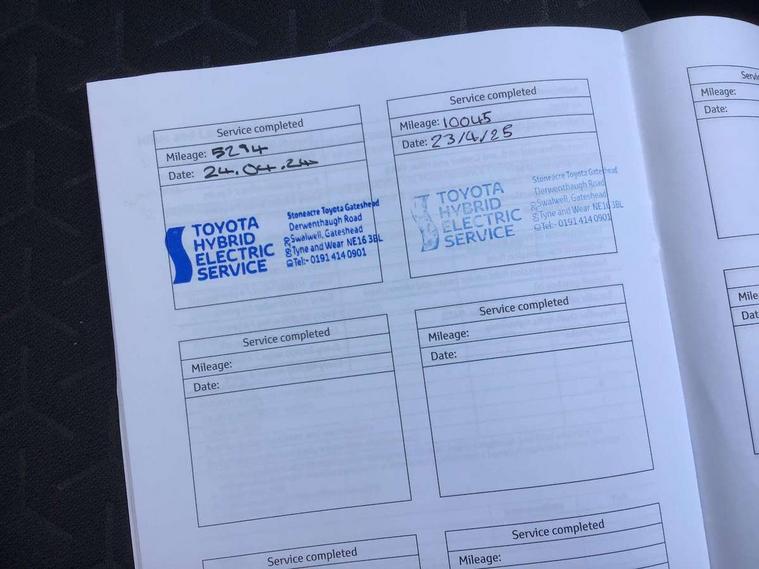 Service completed
Mileage: 5294
Date: 24.04.24
TOYOTA
HYBRID
ELECTRIC
SERVICE
Stoneacre Toyota Gateshead
Derwenthaugh Road
Swalwell, Gateshead
Tyne and Wear NE16 3BL
Tel:- 0191 414 0901
Service completed
Mileage: 10045
Date: 23/4/25
TOYOTA
HYBRID
ELECTRIC
SERVICE
Stoneacre Toyota Gateshead
Derwenthaugh Road
Swalwell, Gateshead
Tyne and Wear NE16 3BL
Tel:- 0191 414 0901
Mileage:
Date:
Service completed
Mileage:
Date:
Service completed
Mileage:
Date:
Service completed
Service completed
Mileage: